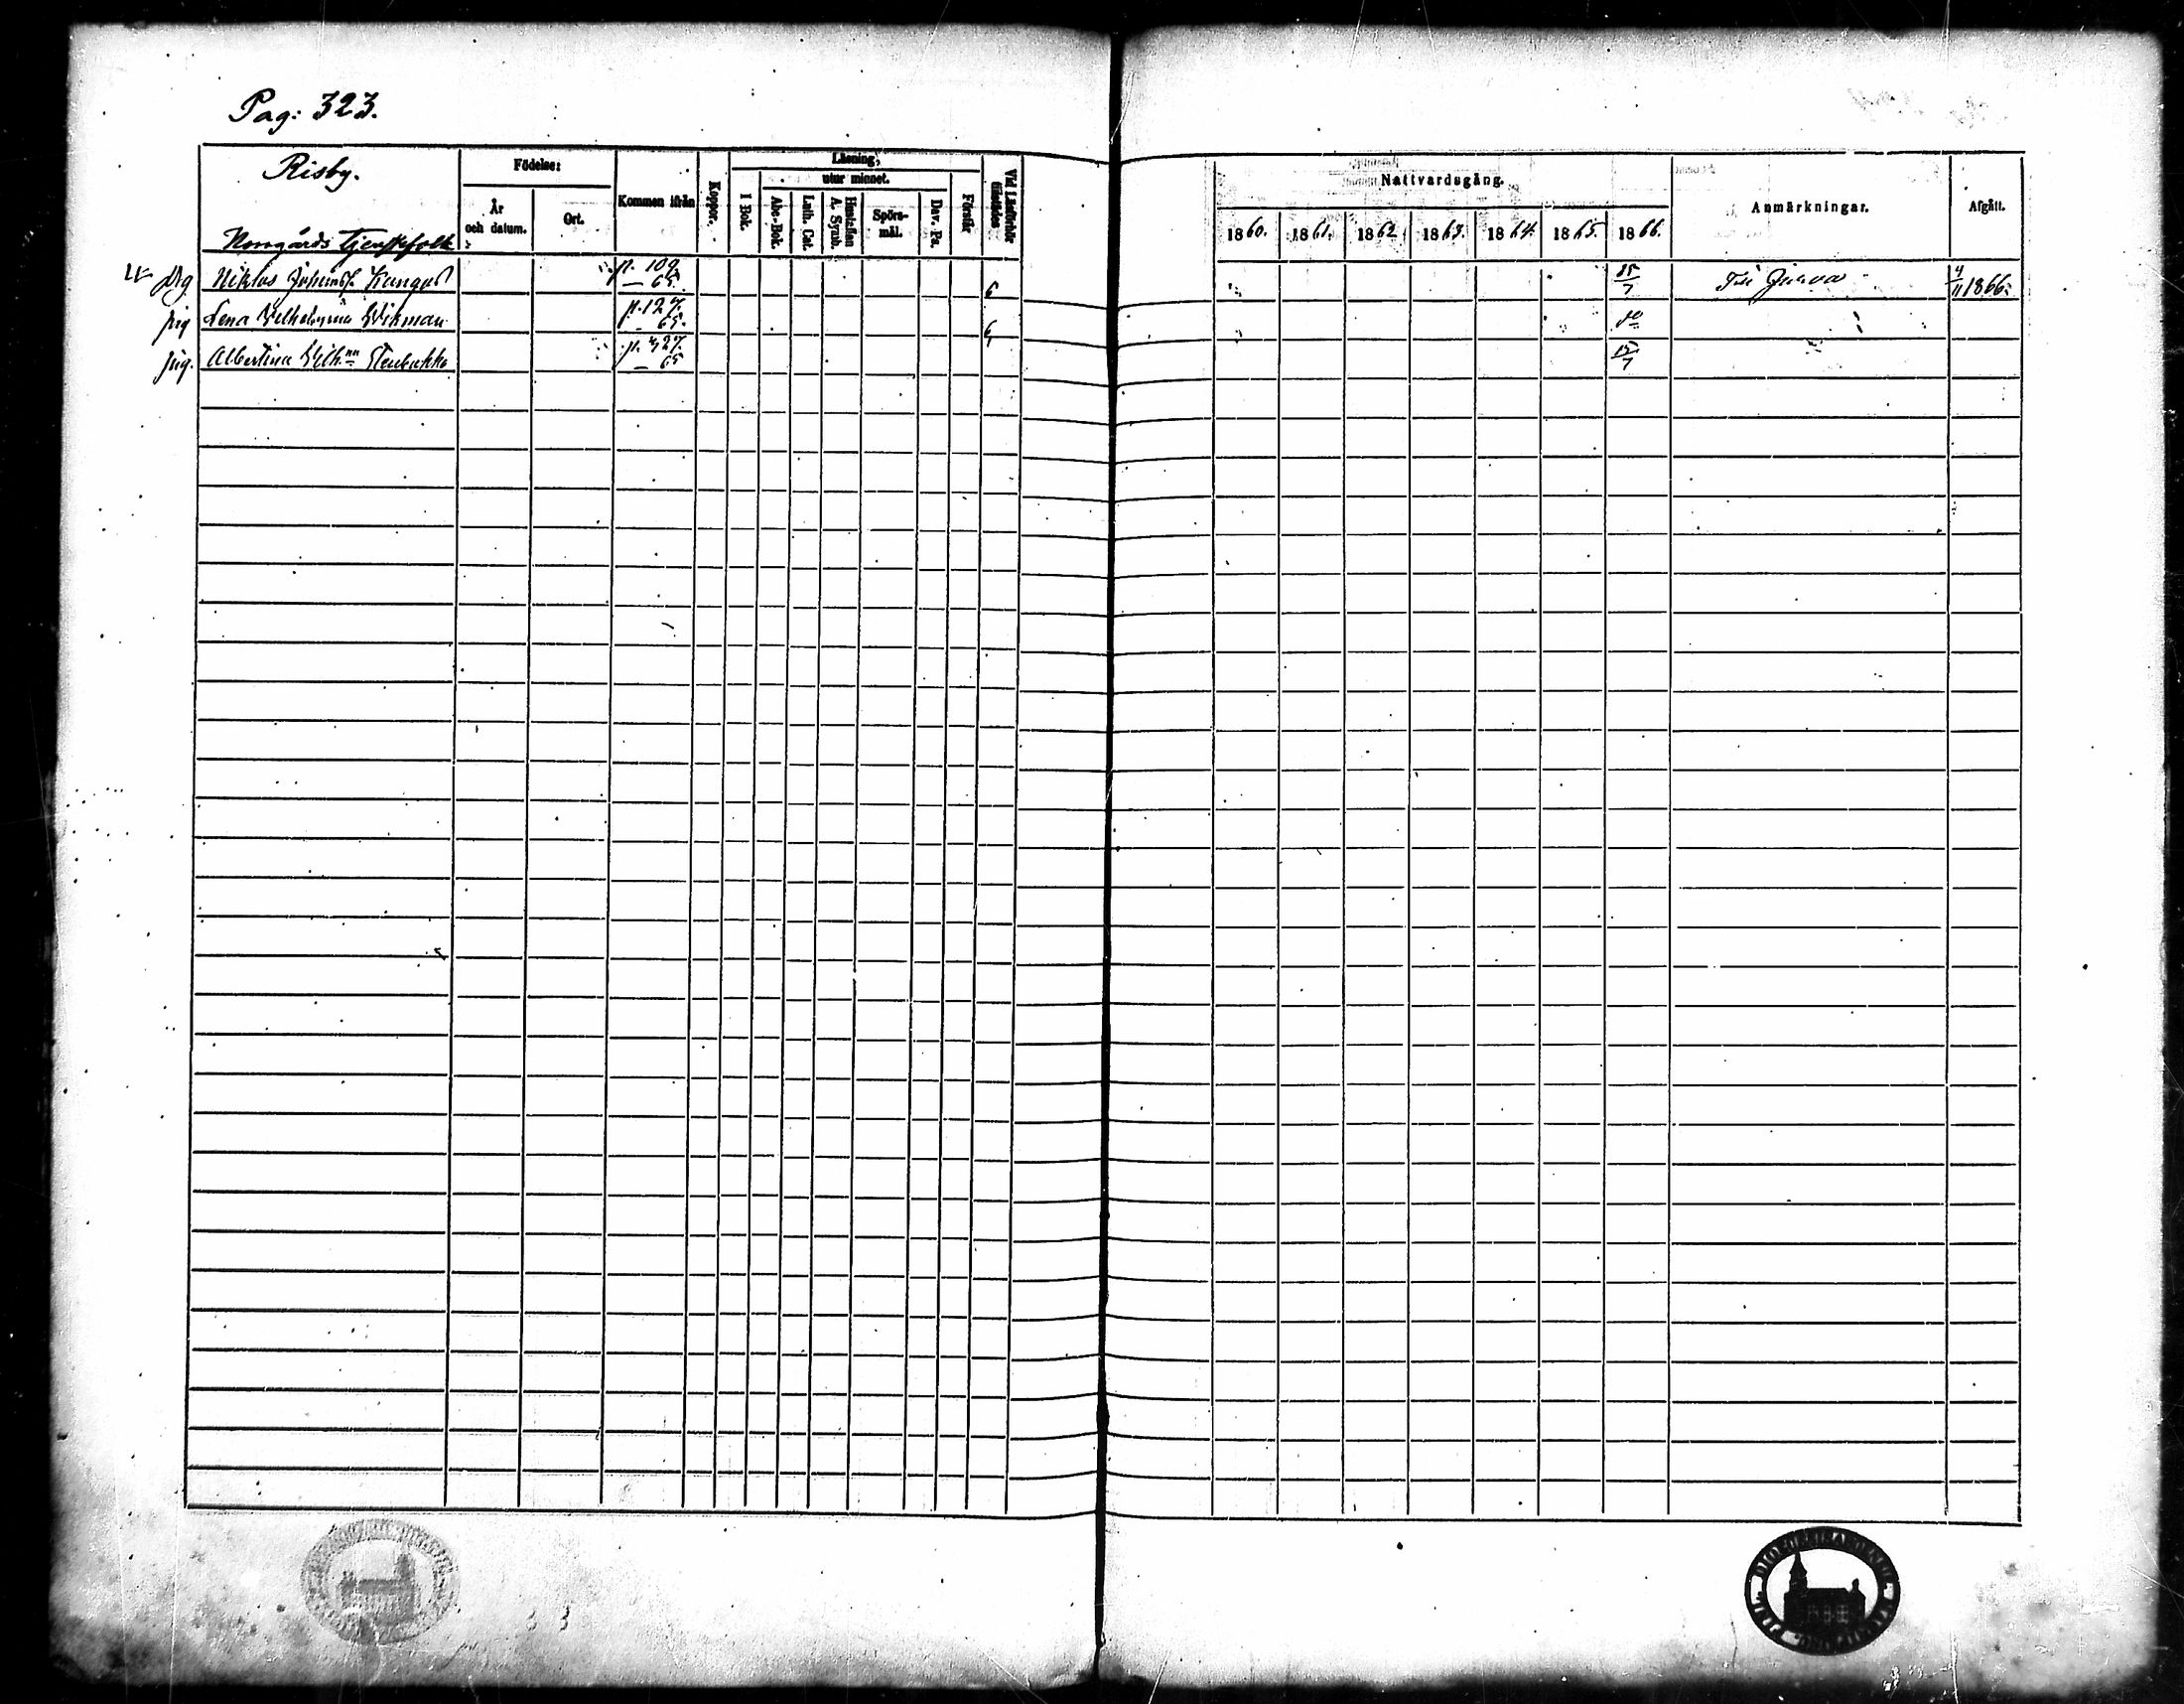 Pag: 323.
Risby.
Norrgårds Tjenstefolk
Födelse:
År och datum.
Ort.
Kommen ifrån
Koppor.
Läsning,
utur minnet.
I Bok.
Abc-Bok.
Luth. Cat.
Hustaflan A. Symb.
Spörsmål.
Dav. Ps.
Förstår
Vid Läsförhör tillstädes
Nattvardsgång.
1860. 1861. 1862. 1863. 1864. 1865. 1866.
Anmärkningar.
Afgått.
Drg Niklas p. 109. — 65. 6 25/7 Till Jurva 4/11 1866.
pig Lena Vilhelmina Wikman p. 127. — 65. 6
pig. Albertina Vilh:na p. 427. — 65 15/7